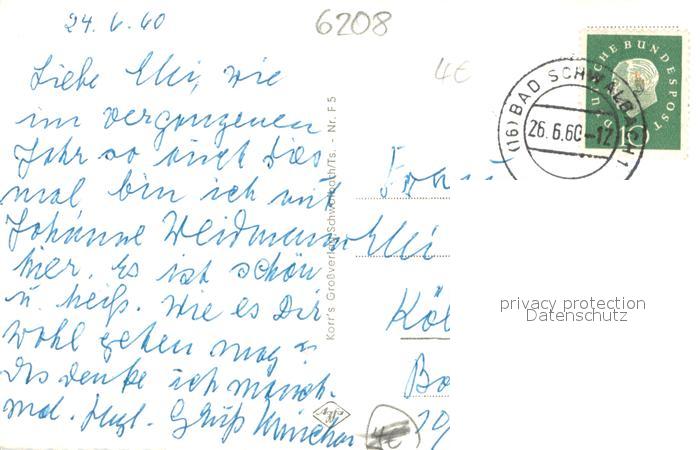 24.6.60
6208
Liebe Elli, wie
im vergangenen
Jahr so auch dies
mal bin ich mit
Johanne Weidmann
hier. Es ist schön
u. heiß. Wie es Dir
wohl gehen mag -
Das denke ich manch-
mal. Herzl. Gruß
4€
DEUTSCHE BUNDESPOST
(16) BAD SCHWALBACH 1
26.6.60-12
Frau
Elli
Köl
Bo
4€
Korr's Großverlag Schwalbach/Ts. - Nr. F 5
privacy protection
Datenschutz